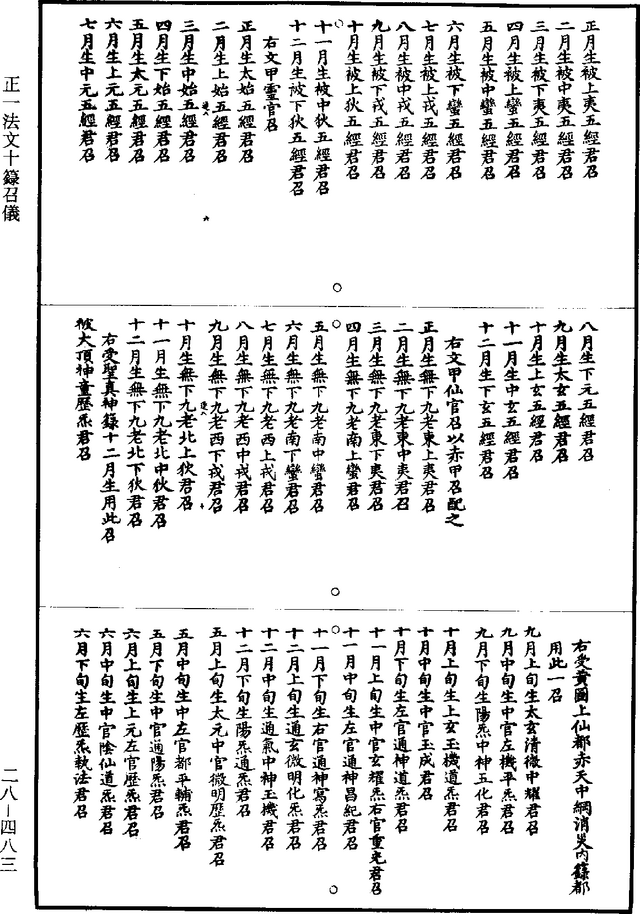 正一法文十籙召儀
正月生被上夷五經君召
二月生被中夷五經君召
三月生被下夷五經君召
四月生被上蠻五經君召
五月生被中蠻五經君召
六月生被下蠻五經君召
七月生被上戎五經君召
八月生被中戎五經君召
九月生被下戎五經君召
十月生被上狄五經君召
十一月生被中狄五經君召
十二月生被下狄五經君召
右文甲靈官召
正月生太始五經君召
二月生上始五經君召
三月生中始五經君召
四月生下始五經君召
五月生太元五經君召
六月生上元五經君召
七月生中元五經君召
八月生下元五經君召
九月生太玄五經君召
十月生上玄五經君召
十一月生中玄五經君召
十二月生下玄五經君召
右文甲仙官召以赤甲召配之
正月生無下九老東上夷君召
二月生無下九老東中夷君召
三月生無下九老東下夷君召
四月生無下九老南上蠻君召
五月生無下九老南中蠻君召
六月生無下九老南下蠻君召
七月生無下九老西上戎君召
八月生無下九老西中戎君召
九月生無下九老西下戎君召
十月生無下九老北上狄君召
十一月生無下九老北中狄君召
十二月生無下九老北下狄君召
右受聖真神籙十二月生用此召
被大頂神童歷炁君召
右受黃圖上仙都赤天中綱消災內籙都
用此一召
九月上旬生太玄清微中耀君召
九月中旬生中官左機平炁君召
九月下旬生陽炁中神五化君召
十月上旬生上玄玉機道炁君召
十月中旬生中官玉成君召
十月下旬生左官通神道炁君召
十一月上旬生中官玄耀炁右官重光君召
十一月中旬生左官通神昌紀君召
十一月下旬生右官通神寫炁君召
十二月上旬生通玄微明化炁君召
十二月中旬生通氣中神玉機君召
十二月下旬生陽炁通炁君召
五月上旬生太元中官微明歷炁君召
五月中旬生中左官都平輔炁君召
五月下旬生中官通陽炁君召
六月上旬生上元左官歷炁君召
六月中旬生中官陰仙道炁君召
六月下旬生左歷炁執法君召
二八－四八三